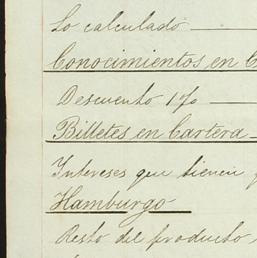 Lo calculado
Conocimientos en C
Descuento 1%
Billetes en Cartera
Intereses que tienen
Hamburgo
Resto del producto